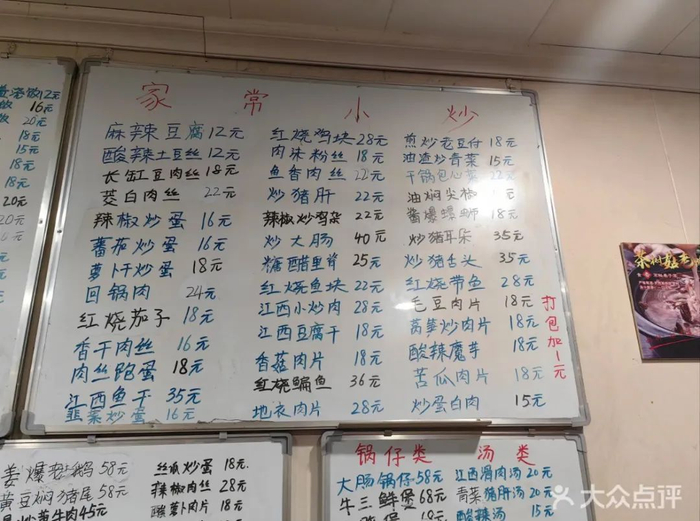 家常小炒
麻辣豆腐 12元
酸辣土豆丝 12元
长缸豆肉丝 18元
茭白肉丝 22元
辣椒炒蛋 16元
蕃茄炒蛋 16元
萝卜干炒蛋 18元
回锅肉 24元
红烧茄子 18元
香干肉丝 16元
肉丝跑蛋 18元
江西鱼干 35元
韭菜炒蛋 16元
红烧鸡块 28元
肉沫粉丝 18元
鱼香肉丝 22元
炒猪肝 22元
辣椒炒鸡杂 22元
炒大肠 40元
糖醋里脊 25元
红烧鱼块 22元
江西小炒肉 28元
江西豆腐干 18元
香菇肉片 18元
红烧鳊鱼 36元
地衣肉片 28元
煎炒老豆付 18元
油渣炒青菜 15元
干锅包心菜 22元
油焖尖椒
酱爆螺蛳 18元
炒猪耳朵 35元
炒猪舌头 35元
红烧带鱼 28元
毛豆肉片 18元
莴笋炒肉片 18元
酸辣魔芋 18元
苦瓜肉片 18元
炒蛋白肉 15元
打包加一元
12元
16元
20元
18元
15元
18元
20元
20元
18元
姜爆鹅 58元
黄豆焖猪尾 58元
炒黄牛肉 45元
丝瓜炒蛋 18元
辣椒肉丝 28元
酸萝卜肉片 18元
锅仔类
大肠锅仔 58元
牛三鲜煲 68元
煲 68元
汤类
江西滑肉汤 20元
青菜猪肝汤 20元
酸辣汤 15元
大众点评